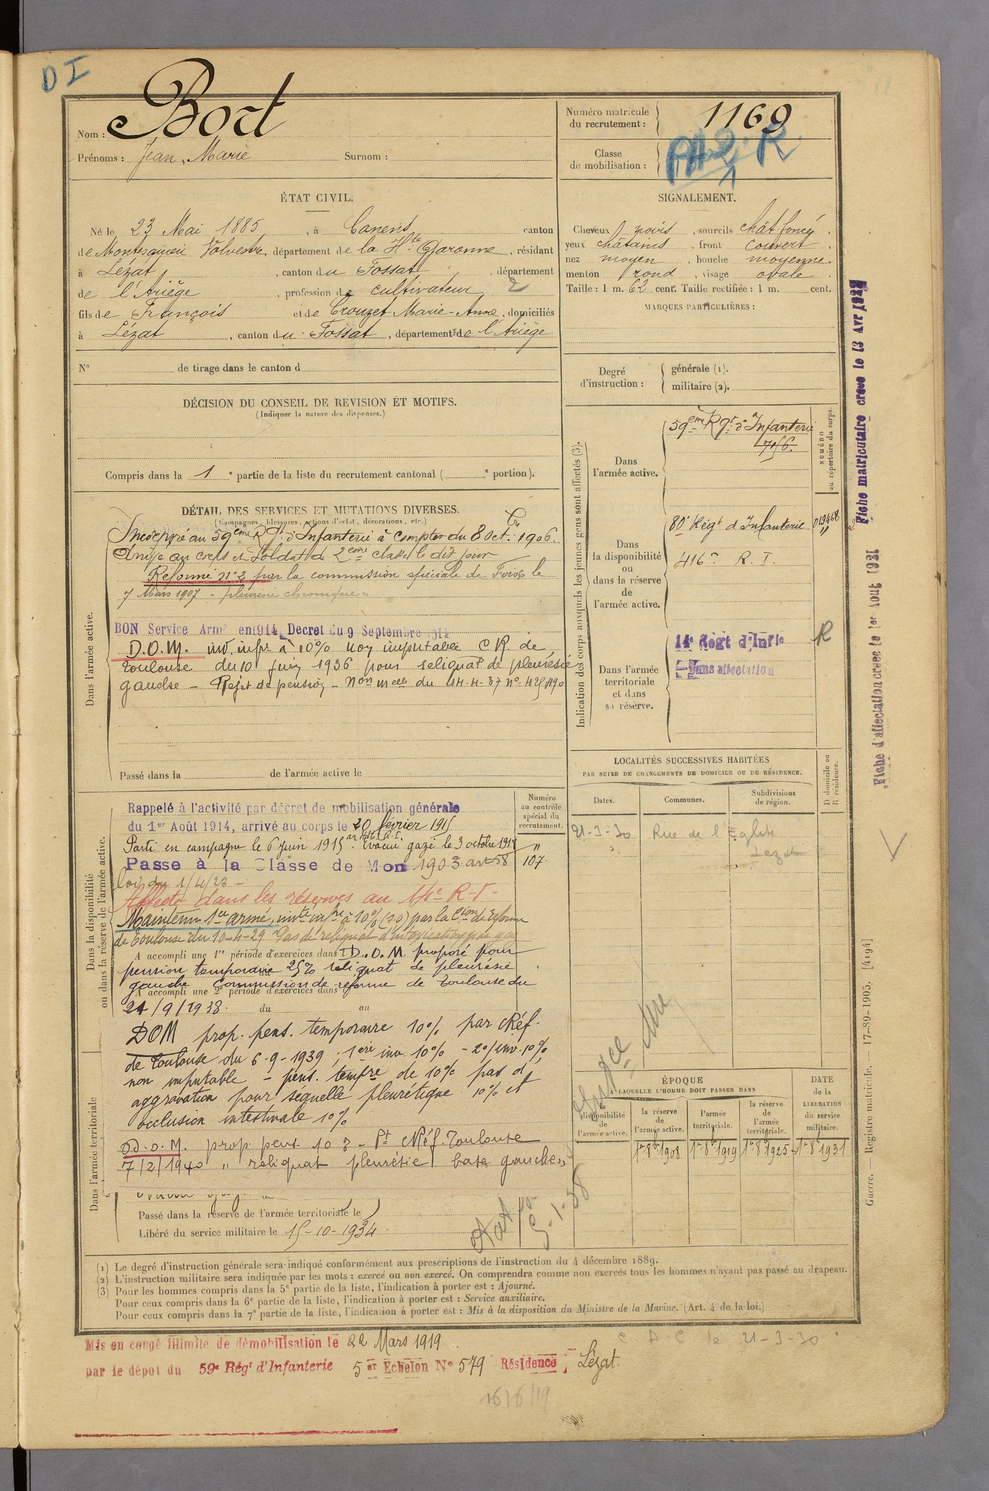 D I
Nom : Bort
Prénoms : Jean, Marie Surnom :
Numéro matricule du recrutement : 1169
Classe de mobilisation :
ÉTAT CIVIL.
Né le 23 Mai 1885, à Canens canton
de Montesquieu Volvestre, département de la Hte Garonne, résidant
à Lézat, canton du Fossat, département
de l'Ariège, profession de cultivateur 2
fils de François et de Crouzet Marie-Anne, domiciliés
à Lézat, canton du Fossat, département de l'Ariège
N° de tirage dans le canton d
SIGNALEMENT.
Cheveux noirs, sourcils chât foncé.
yeux châtains, front couvert
nez moyen, bouche moyenne.
menton rond, visage ovale.
Taille : 1 m. 62 cent. Taille rectifiée : 1 m. cent.
MARQUES PARTICULIÈRES :
Degré d'instruction : générale (1).
militaire (2).
DÉCISION DU CONSEIL DE REVISION ET MOTIFS.
(Indiquer la nature des dispenses.)
Compris dans la 1e partie de la liste du recrutement cantonal ( e portion).
DÉTAIL DES SERVICES ET MUTATIONS DIVERSES.
(Campagnes, blessures, actions d'éclat, décorations, etc.)
Dans l'armée active.
Incorporé au 59ème Rgt d'Infanterie à compter du 8 Oct. 1906.
Arrivé au corps et Soldat de 2ème classe le dit jour
Réformé n° 2 par la commission spéciale de Foix le
7 Mars 1907 - pleurésie chronique
BON Service Armé en 1914 Decret du 9 Septembre 1914
D.O.M. inv. infr à 10% non imputable C.R. de
Toulouse du 10 juin 1936 pour reliquat de pleurésie
gauche - Rejet de pension - Non
Passé dans la de l'armée active le
Indication des corps auxquels les jeunes gens sont affectés (3).
NUMÉRO au répertoire du corps.
Dans l'armée active. 59ème Rgt d'Infanterie
Dans la disponibilité ou dans la réserve de l'armée active. 80e Régt d'Infanterie
416e R. I.
Dans l'armée territoriale et dans sa réserve. 14e Regt d'Infie
Sans affectation
R
Fiche matriculaire creee le 13 Avr
Fiche d'affectation creee le 1er Aout 1931
LOCALITÉS SUCCESSIVES HABITÉES
PAR SUITE DE CHANGEMENTS DE DOMICILE OU DE RÉSIDENCE.
Dates. Communes. Subdivisions de région. D domicile ou R résidence.
21-3-30 Rue de l'Eglise
Lezat
Dans la disponibilité ou dans la réserve de l'armée active.
Numéro au contrôle spécial du recrutement.
Rappelé à l'activité par décret de mobilisation générale
du 1er Août 1914, arrivé au corps le 20 février 1915
Parti en campagne le 6 juin 1915. Evacué gazé le 3 octobre 1918
Passe à la Classe de Mon 1903 art 58 107
loi du 1/4/23 -
Affecté dans les réserves au 14e R.I.
Maintenu Sce armé, invte infre à 10% (20) par la Cion de Réforme
de Toulouse du 10-4-29 Pas de reliquat d'intoxication par gaz
A accompli une 1re période d'exercices dans D.O.M. proposé pour
pension temporaire 25% reliquat de pleurésie
A accompli une 2e période d'exercices dans
gauche Commission de réforme de Toulouse du
21/9/1938 du au
DOM prop. pens. temporaire 10% par C Réf.
de Toulouse du 6-9-1939; 1ère inv. 10% - 2e/inv. 10%
non imputable - pens. tempre de 10% pas d'
aggravation pour séquelle pleurétique 10% et
occlusion intestinale 10%
Dans l'armée territoriale
D.O.M. prop. pens. 10% - Pt C Réf. Toulouse
7/2/1940 " reliquat pleurésie base gauche "
Passé dans la réserve de l'armée territoriale le
Libéré du service militaire le 15-10-1934
ÉPOQUE
À LAQUELLE L'HOMME DOIT PASSER DANS
DATE de la LIBÉRATION du service militaire.
la disponibilité de l'armée active. la réserve de l'armée active. l'armée territoriale. la réserve de l'armée territoriale.
1er 8bre 1908 1er 8bre 1919 1er 8bre 1925 1er 8bre 1931
5-1-38
Guerre. — Registre matricule. — 17-89-1905. [4194]
(1) Le degré d'instruction générale sera indiqué conformément aux prescriptions de l'instruction du 4 décembre 1889.
(2) L'instruction militaire sera indiquée par les mots : exercé ou non exercé. On comprendra comme non exercés tous les hommes n'ayant pas passé au drapeau.
(3) Pour les hommes compris dans la 5e partie de la liste, l'indication à porter est : Ajourné.
Pour ceux compris dans la 6e partie de la liste, l'indication à porter est : Service auxiliaire.
Pour ceux compris dans la 7e partie de la liste, l'indication à porter est : Mis à la disposition du Ministre de la Marine. (Art. 4 de la loi.)
Mis en congé illimité de démobilisation le 22 Mars 1919
C A C le 21-3-30
par le dépot du 59e Régt d'Infanterie 5er Echelon N° 579 Résidence : Lézat.
1616/19